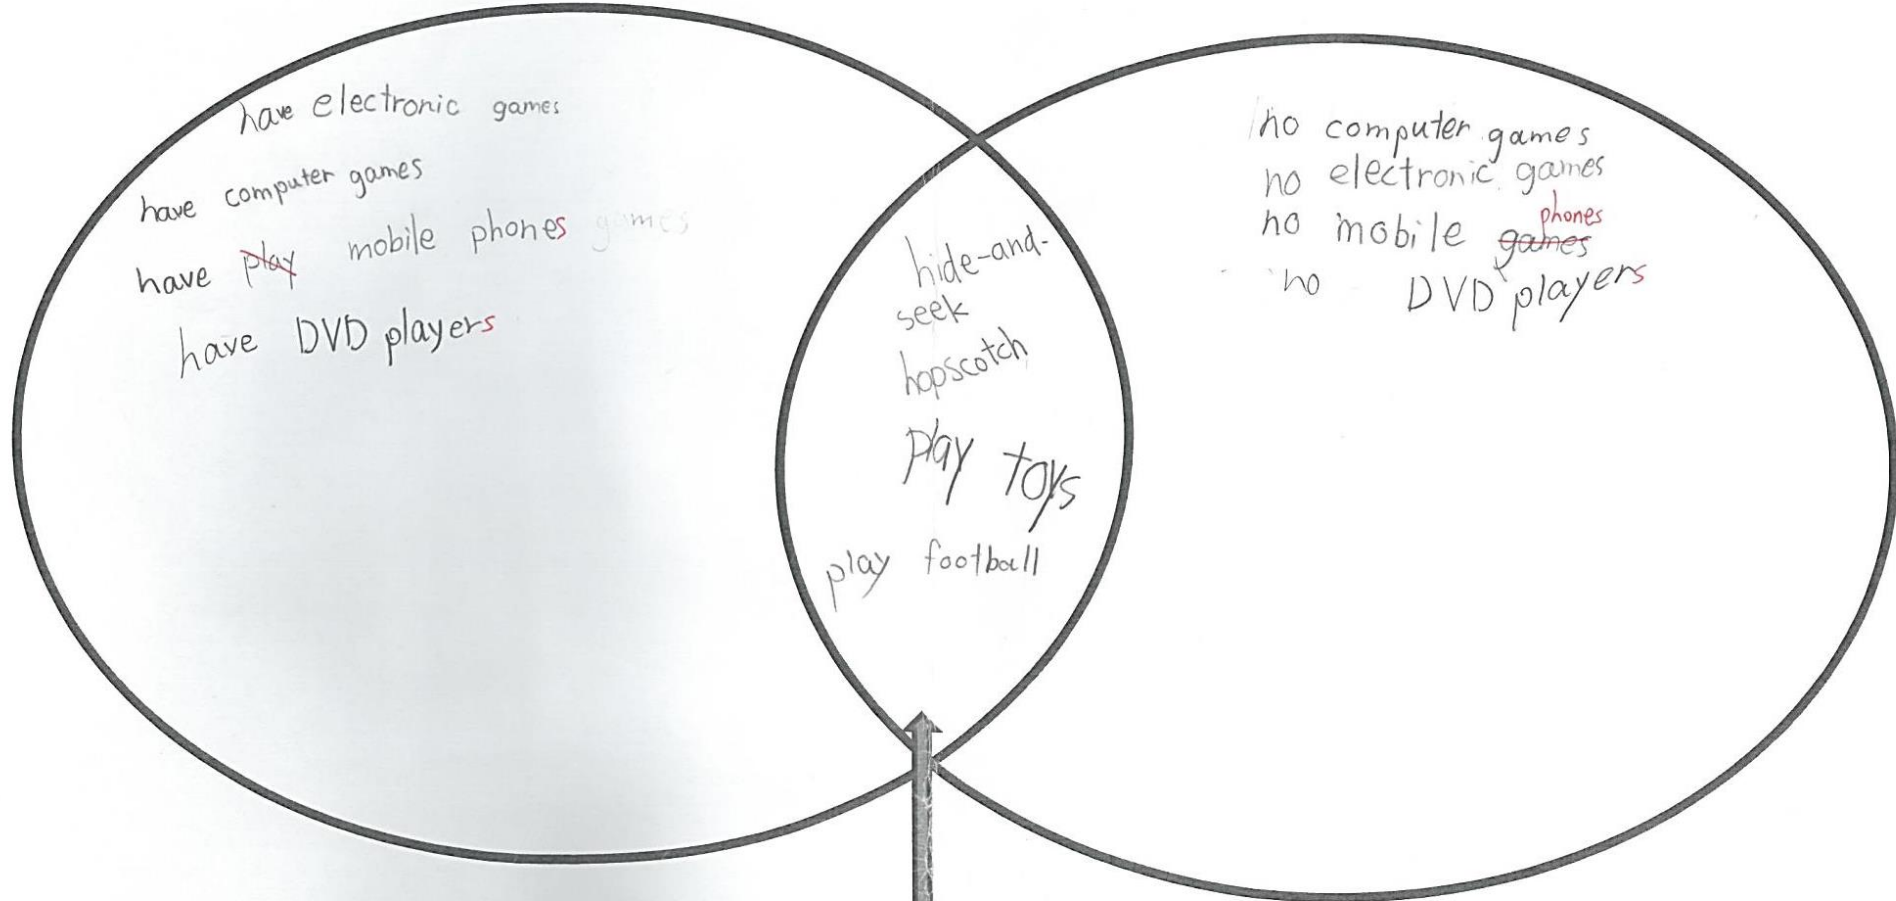 have electronic games
have computer games
have play mobile phones games
have DVD players
hide-and-
seek
hopscotch
play toys
play football
no computer games
no electronic games
phones
no mobile games
no DVD players